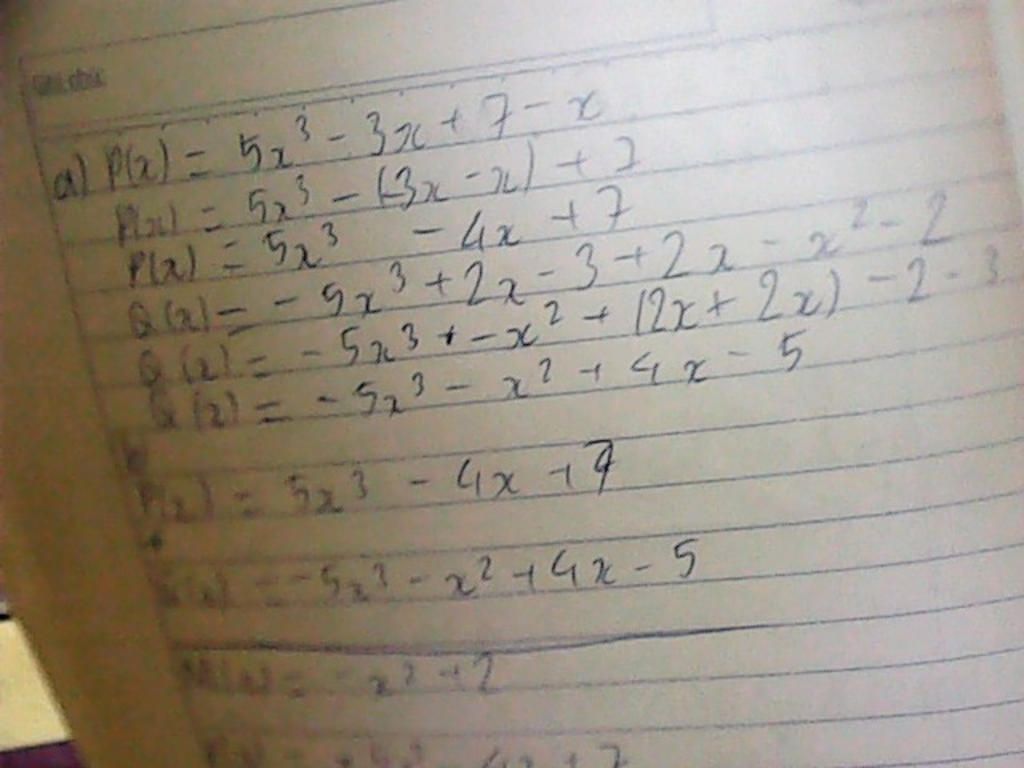 Ghi chú:
a) P(x) = 5x³ - 3x + 7 - x
P(x) = 5x³ - (3x - x) + 7
P(x) = 5x³ - 4x + 7
Q(x) = - 5x³ + 2x - 3 + 2x - x² - 2
Q(x) = - 5x³ + - x² + (2x + 2x) - 2 - 3
Q(x) = - 5x³ - x² + 4x - 5
P(x) = 5x³ - 4x + 7
Q(x) = - 5x³ - x² + 4x - 5
M(x) = - x² + 2